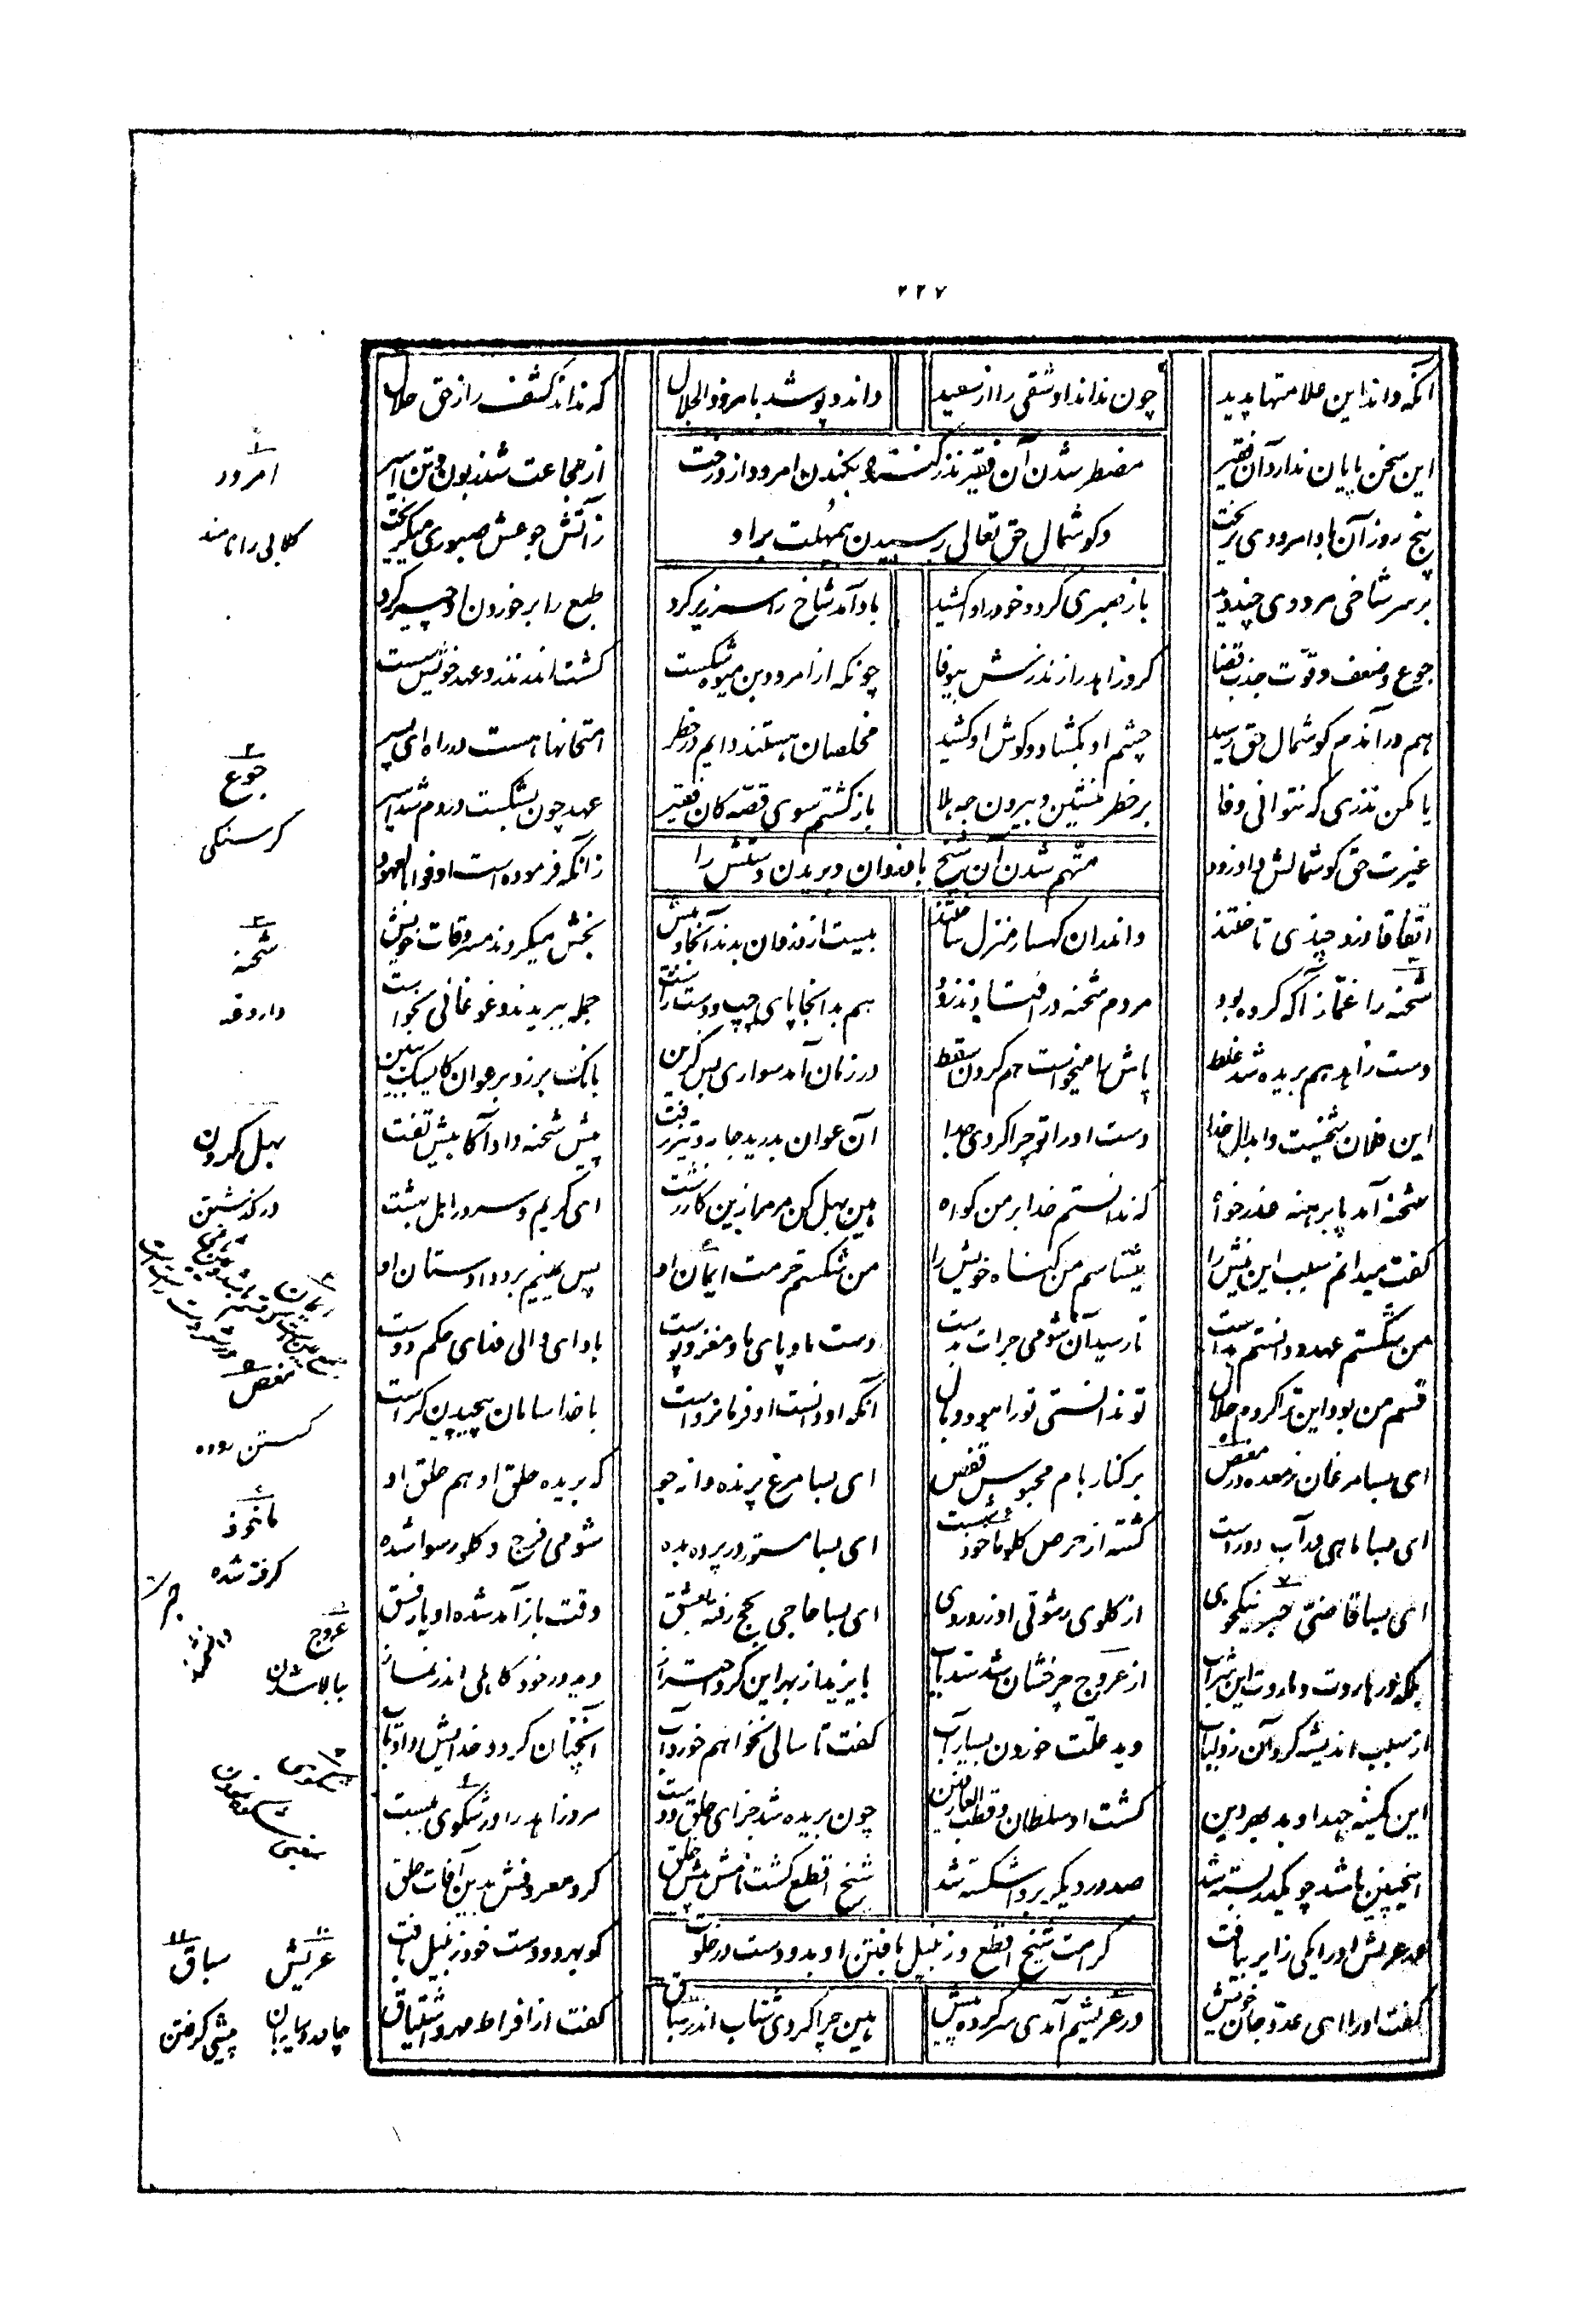 ۲۲۷
آنکه داند این علامتها پدید چون نداند او شقی را از سعید داند و پوشد بامر ذو الجلال که نداند کشف راز حق حلال
این سخن پایان ندارد آن فقیر از مجاعت شد زبون و تن اسیر
مضطر شدن آن فقیر نذر کننده بکندن امرود از درخت
پنج روز آن باد امرودی نریخت ز آتش جوعش صبوری میگریخت
و کوشمال حق تعالی رسیدن بیمهلت براو
بر سر شاخی مرودی چند دید باز صبری کرد و خود را وا کشید باد آمد شاخ را سر زیر کرد طبع را بر خوردن او چیر کرد
جوع و ضعف و قوّت جذب قضا کرد زاهد را ز نذرش بیوفا چونکه از امرودبن میوه شکست کشت اندر نذر و عهد خویش سست
هم در آندم کوشمال حق رسید چشم او بکشاد و کوش او کشید مخلصان هستند دایم در خطر امتحانها هست در راه ای پسر
یا مکن نذری که نتوانی وفا بر خطر منشین و بیرون جه هلا باز کشتم سوی قصّه کان فقیر عهد چون بشکست در دم شد اسیر
غیرت حق کوشمالش داد زود زانکه فرموده است اوفوا بالعهود
متّهم شدن آن شیخ با دزدان و بریدن دستش را
اتّفاقا دزد چندی تاختند واندران کهسار منزل ساختند بیست از دزدان بدند آنجا و بیش بخش میکردند مسروقات خویش
شحنه را غمّاز آگه کرده بود مردم شحنه در افتادند زود هم بدانجا پای چپ و دست راست جمله ببریدند و غوغائی بخواست
دست زاهد هم بریده شد غلط پاش را میخواست هم کردن سقط در زمان آمد سواری بس کزین بانک بر زد بر عوان کای سک ببین
این فلان شیخست و ابدال خدا دست او را تو چرا کردی جدا آن عوان بدرید جامه و تیز رفت پیش شحنه داد آگاهیش تفت
شحنه آمد پا برهنه عذر خواه که ندانستم خدا بر من کواه هین بهل کن مر مرا زین کار زشت ای کریم و سرور اهل بهشت
کفت میدانم سبب این نیش را میشناسم من کناه خویش را من شکستم حرمت ایمان او پس یمینم برد دادستان او
من شکستم عهد و دانستم بدست تا رسید آن شومی جرأت بدست دست ما و پای ما و مغز و پوست باد ای والی فدای حکم دوست
قسم من بود این ترا کردم حلال تو ندانستی ترا نبود وبال آنکه او دانست او فرمانرواست با خدا سامان پیچیدن کراست
ای بسا مرغان ز معده در مغص بر کنار بام محبوس قفص ای بسا مرغ پرنده دانه جو که بریده حلق او هم حلق او
ای بسا ماهی در آب دور دست کشته از حرص کلو ماخوذ شست ای بسا مستور در پرده بده شومی فرج و کلو رسوا شده
ای بسا قاضیّ حبر نیکخوی از کلوی رشوتی او زردروی ای بسا حاجی بحج رفته بعشق وقت باز آمد شده او یار فسق
بلکه در هاروت و ماروت این شراب از عروج چرخشان شد سدّ باب بایزید از بهر این کرد احتراز دید در خود کاهلی اندر نماز
از سبب اندیشه کرد آن ذو لباب دید علّت خوردن بسیار آب کفت تا سالی نخواهم خورد آب آنچنان کرد و خدایش داد تاب
این کمینه جهد او بد بهر دین کشت او سلطان و قطب العارفین چون بریده شد جزای حلق دست مرد زاهد را در شکوی ببست
اینچنین باشد چو یکدر بسته شد صد در دیکر بر او اشکسته شد شیخ اقطع کشت نامش پیش خلق کرد معروفش بدین آفات حلق
در عریش او را یکی زایر بیافت کو بهر دو دست خود زنبیل بافت
کرامت شیخ اقطع و زنبیل بافتن او بدو دست در خلوت
کفت او را ای عدوّ جان خویش در عریشم آمدی سر کرده پیش هین چرا کردی شتاب اندر سباق کفت از افراط مهر و اشتیاق
امرود
کلابی را نامند
جوع
کرسنکی
شحنه
داروغه
بهل کردن
در کذشتن
مغص
ماخوذ
کرفته شده
حبر
دانشمند
عروج
بالا شدن
عریش
سباق
پیشی کرفتن